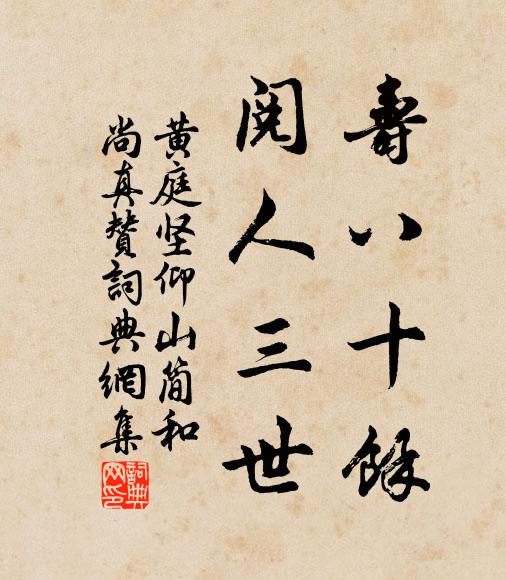 壽八十餘
閱人三世
黃庭坚仰山简和
尚真贊詞典網集
詞典網印